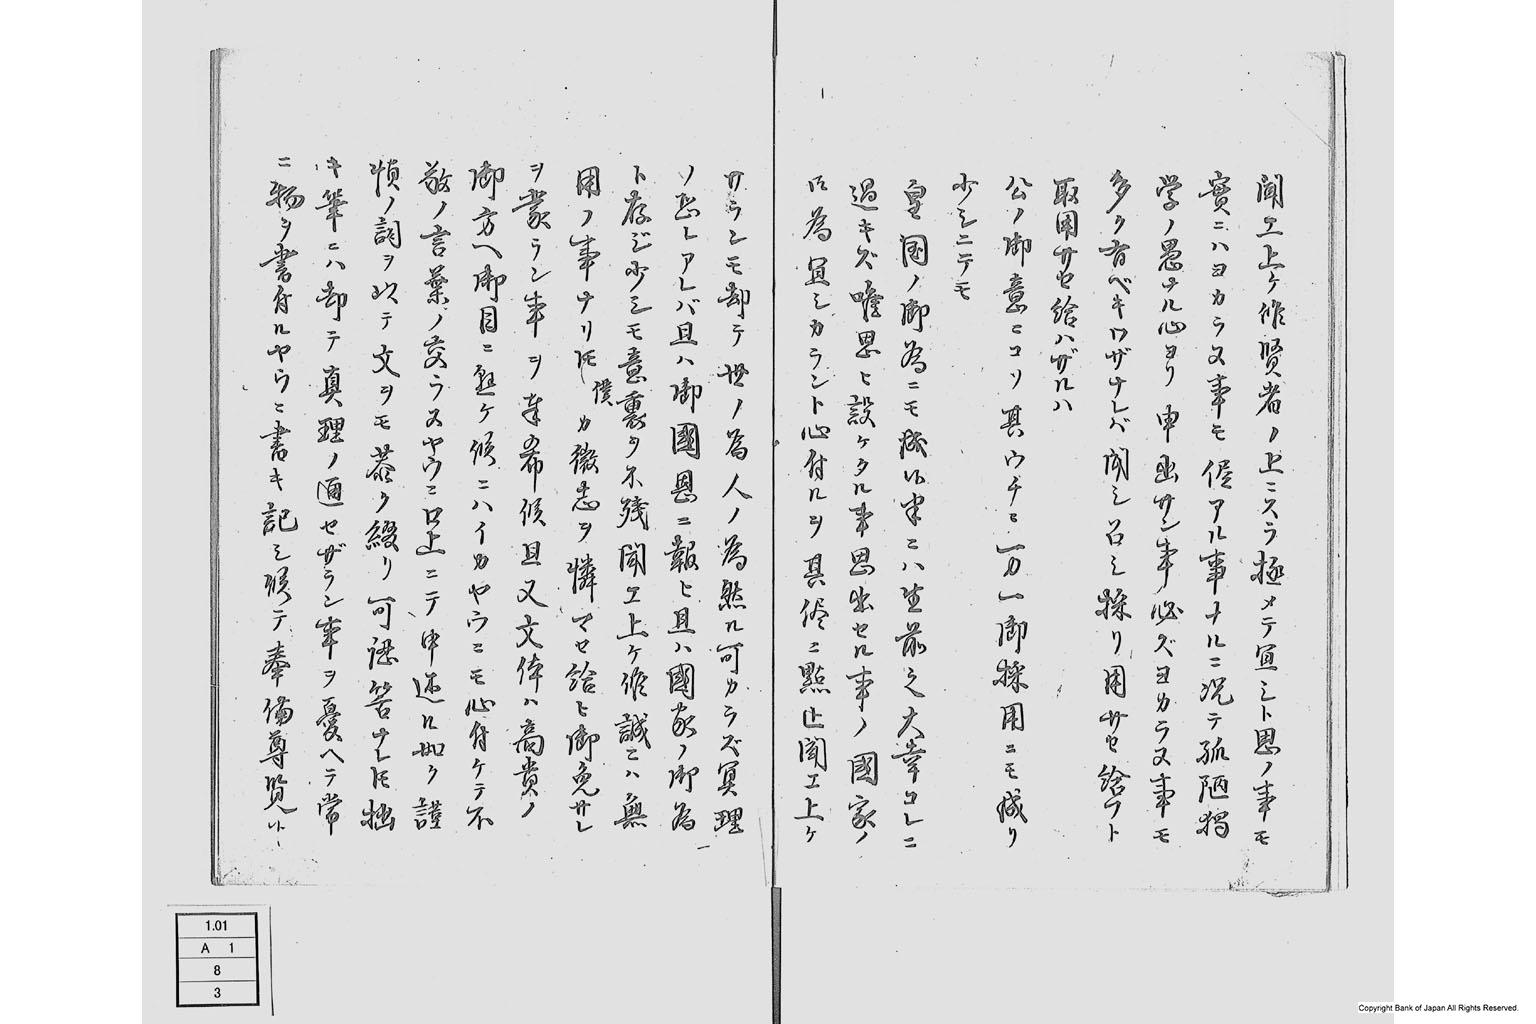 聞エ上ケ候賢者ノ上ニスラ極メテ宜シト思ノ事モ
實ニハヨカラヌ事モ侭アル事ナルニ况テ孤陋獨
学ノ愚ナル心ヨリ申出サン事必ズヨカラヌ事モ
多ク有ベキワザナレバ聞シ召シ採リ用サセ給フト
取用サセ給ハザルハ
公ノ御意ニヨリ其ウチニ一カ一御採用ニモ成リ
少シニテモ
皇国ノ御為ニモ成候半ニハ生前之大幸コレニ
過キズ唯思ヒ設ケタル事思出セル事ノ國家ノ
為宜シカラント心付ルヲ其侭ニ點止聞エ上ケ
サランモ却テ世ノ為人ノ為然ル可カラズ冥理
ノ恐レアレバ且ハ御國恩ニ報ヒ且ハ國家ノ御為
ト存ジ少シモ意裏ヲ不残聞エ上ケ候誠ニハ無
用ノ事ナリ氏僕カ微志ヲ憐マセ給ヒ御免サレ
ヲ蒙ラン事ヲ奉希候且又文体ハ高貴ノ
御方ヘ御目ニ懸ケ候ニハイカヤウニモ心付ケテ不
敬ノ言葉ノ交ラヌヤウニ口上ニテ申述ル如ク謹
慎ノ詞ヲ以テ文ヲモ恭ク綴リ可認筈ナレ氏拙
キ筆ニハ却テ真理ノ通セザラン事ヲ憂ヘテ常
ニ物ヲ書付ルヤウニ書キ記シ候テ奉備尊覧候
1.01
A 1
8
3
Copyright Bank of Japan All Rights Reserved.